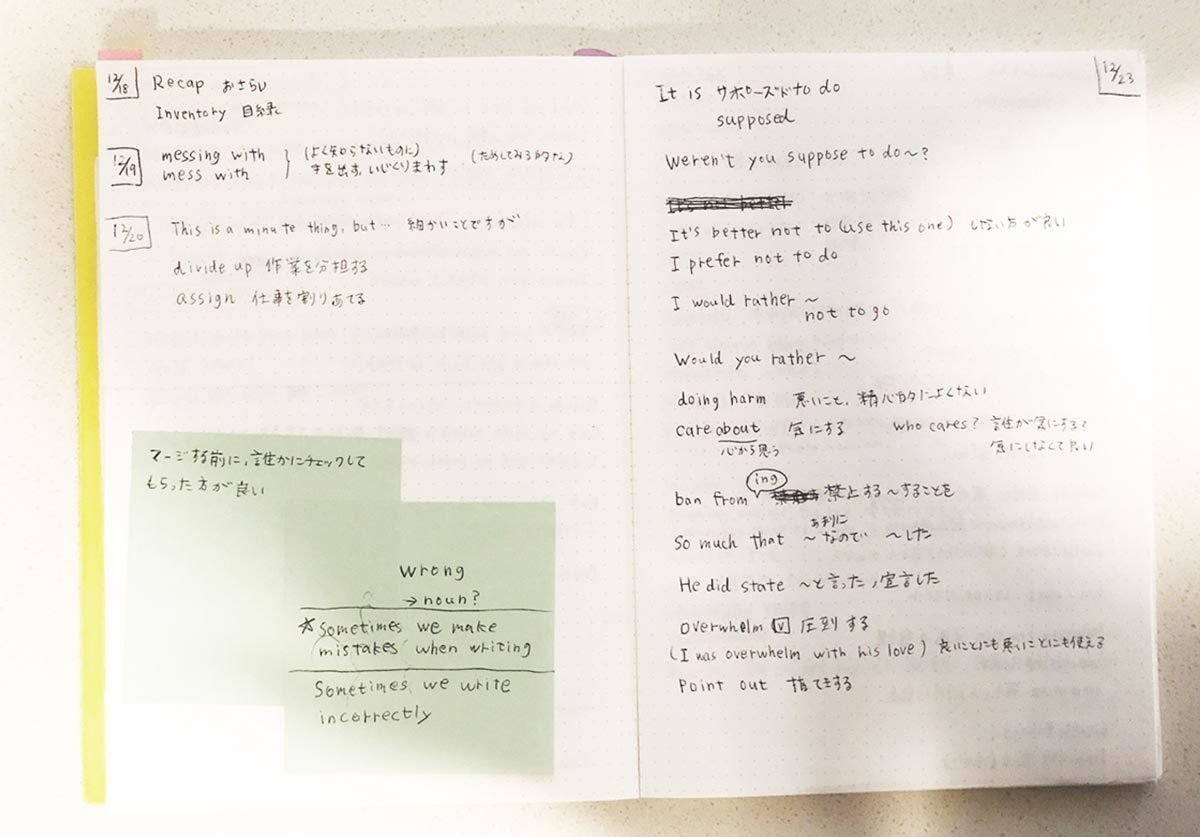 12/18 Recap おさらい
Inventory 目録
12/19 messing with (よく知らないものに) (ためしてみる的な)
mess with 手を出す、いじくりまわす
12/20 This is a minute thing, but… 細かいことですが
divide up 作業を分担する
assign 仕事を割りあてる
マージする前に、誰かにチェックして
もらった方が良い
wrong
→ noun?
☆ Sometimes we make
mistakes when writing
Sometimes we write
incorrectly
12/23
It is サポーズド to do
supposed
Weren't you suppose to do〜?
It's not better
It's better not to (use this one) しない方が良い
I prefer not to do
I would rather 〜
not to go
Would you rather 〜
doing harm 悪いこと、精心的によくない
care about 気にする who cares? 誰が気にする?
心から思う 気にしなくて良い
ing
ban from 禁止する 〜することを
あまりに
So much that 〜なので 〜した
He did state 〜と言った、宣言した
overwhelm V 圧倒する
(I was overwhelm with his love) 良いことにも悪いことにも使える
Point out 指てきする